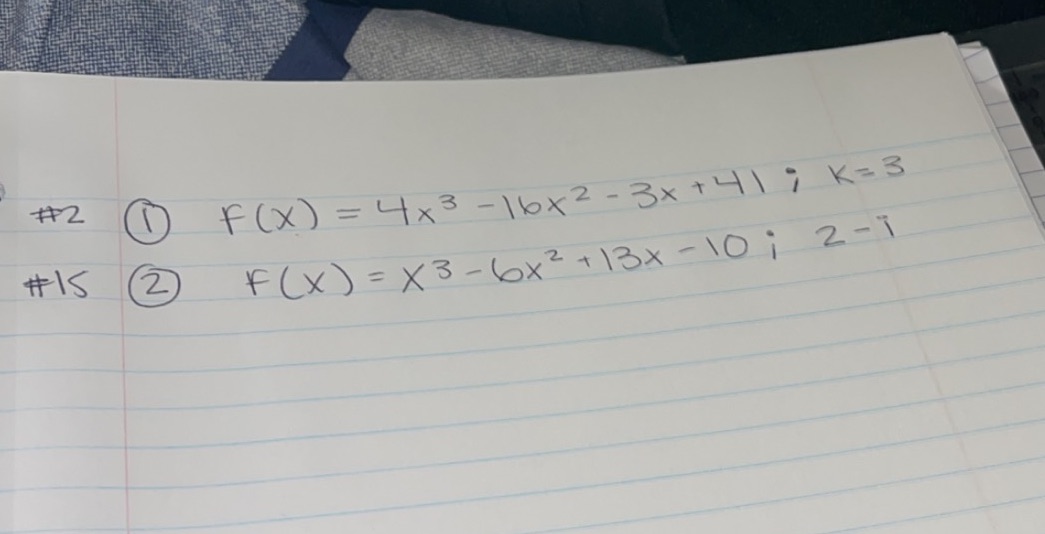 #2 ① F(x) = 4x³ - 16x² - 3x + 41 ; K = 3
#15 ② F(x) = x³ - 6x² + 13x - 10 ; 2 - i